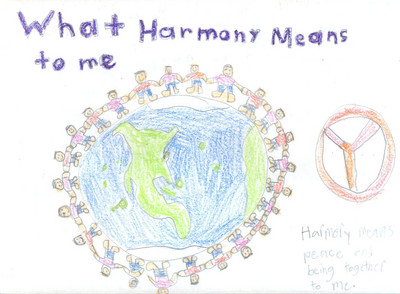 What Harmony Means
to me
Harmony means
peace and
being together
to me.